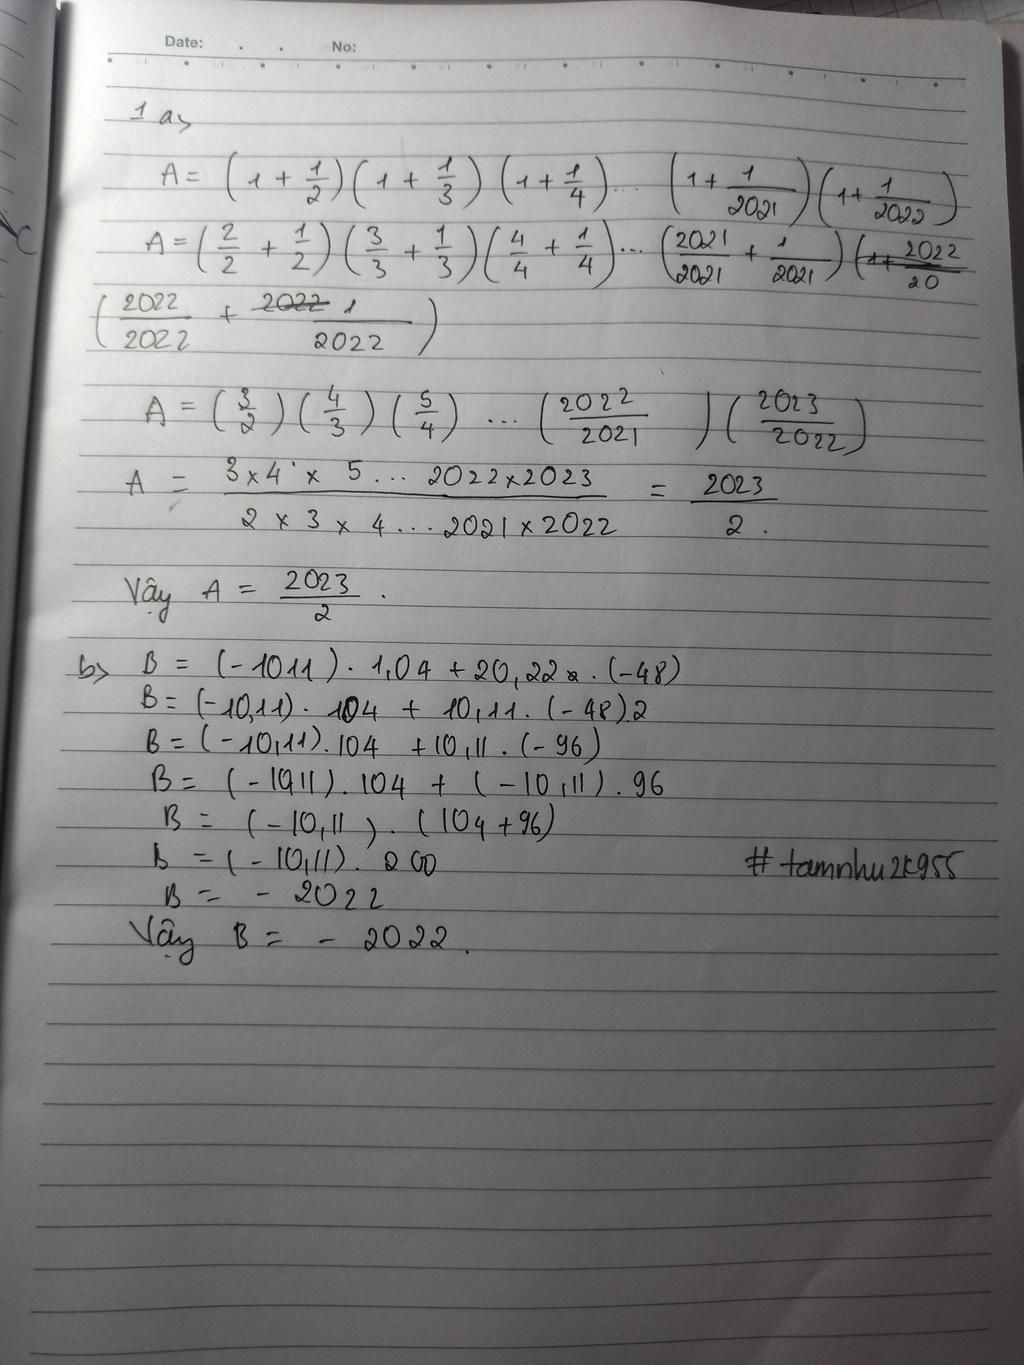 Date: . . No:
1 a>
A = (1 + 1/2)(1 + 1/3)(1 + 1/4)... (1 + 1/2021)(1 + 1/2022)
A = (2/2 + 1/2)(3/3 + 1/3)(4/4 + 1/4)... (2021/2021 + 1/2021)
(2022/2022 + 1/2022)
A = (3/2)(4/3)(5/4) ... (2022/2021)(2023/2022)
A = 3 x 4 x 5 ... 2022 x 2023 / 2 x 3 x 4 ... 2021 x 2022 = 2023/2.
Vậy A = 2023/2.
b> B = (-1011) . 1,04 + 20,22 . (-48)
B = (-10,11) . 104 + 10,11 . (-48)2
B = (-10,11) . 104 + 10,11 . (-96)
B = (-1011) . 104 + (-10,11) . 96
B = (-10,11) . (104 + 96)
B = (-10,11) . 200
#tamnhu2k955
B = - 2022
Vậy B = - 2022.